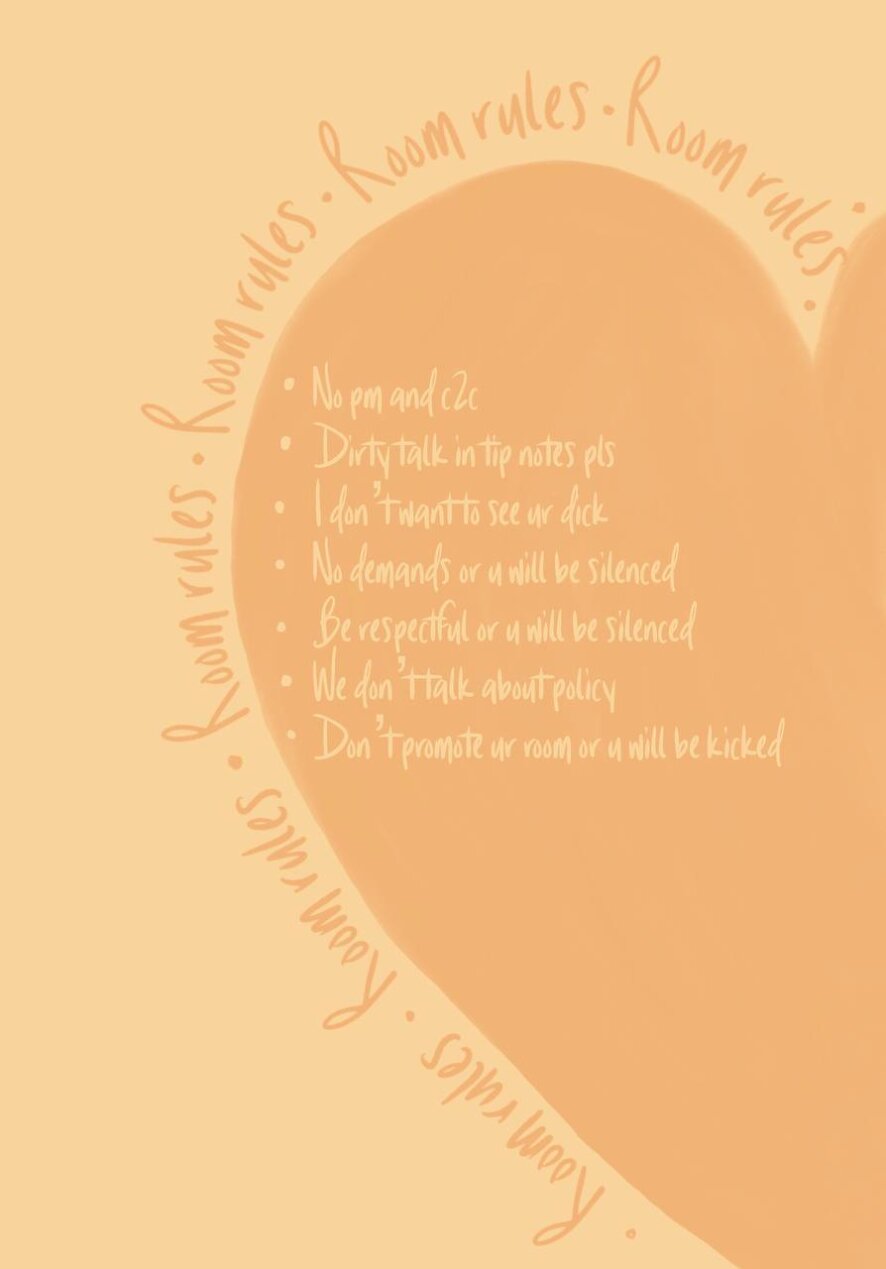 Room rules · Room rules · Room rules · Room rules · Room rules · Room rules ·
• No pm and c2c
• Dirty talk in tip notes pls
• I don't want to see ur dick
• No demands or u will be silenced
• Be respectful or u will be silenced
• We don't talk about policy
• Don't promote ur room or u will be kicked